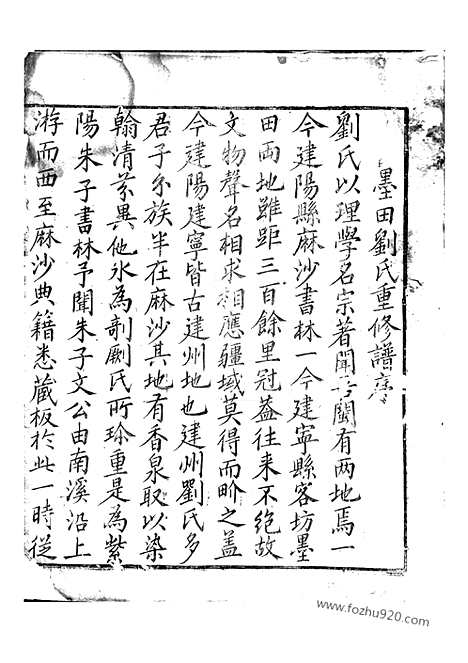 墨田劉氏重修譜序
劉氏以理學名宗著聞吾閩有兩地焉一
今建陽縣麻沙書林一今建寧縣客坊墨
田兩地雖距三百餘里冠蓋往來不絕故
文物聲名相求相應疆域莫得而畍之蓋
今建陽建寧皆古建州地也建州劉氏多
君子尔族半在麻沙其地有香泉取以染
翰清芬異他氷為剞劂氏所珍重是為紫
陽朱子書林予聞朱子文公由南溪沿上
游而西至麻沙典籍悉藏板於此一時從
www.fozhu920.com